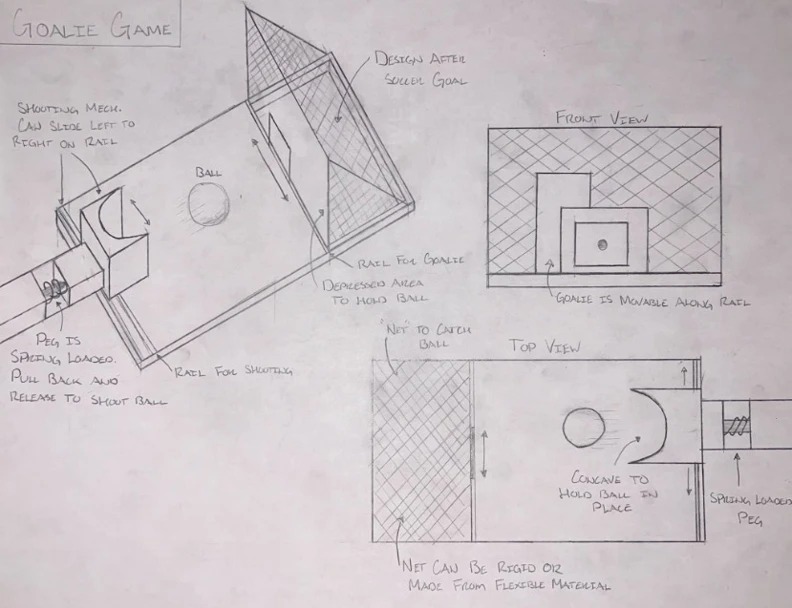 GOALIE GAME
SHOOTING MECH.
CAN SLIDE LEFT TO
RIGHT ON RAIL
BALL
DESIGN AFTER
SOCCER GOAL
RAIL FOR GOALIE
DEPRESSED AREA
TO HOLD BALL
PEG IS
SPRING LOADED.
PULL BACK AND
RELEASE TO SHOOT BALL
RAIL FOR SHOOTING
FRONT VIEW
GOALIE IS MOVABLE ALONG RAIL
TOP VIEW
"NET" TO CATCH
BALL
CONCAVE TO
HOLD BALL IN
PLACE
SPRING LOADED
PEG
NET CAN BE RIGID OR
MADE FROM FLEXIBLE MATERIAL